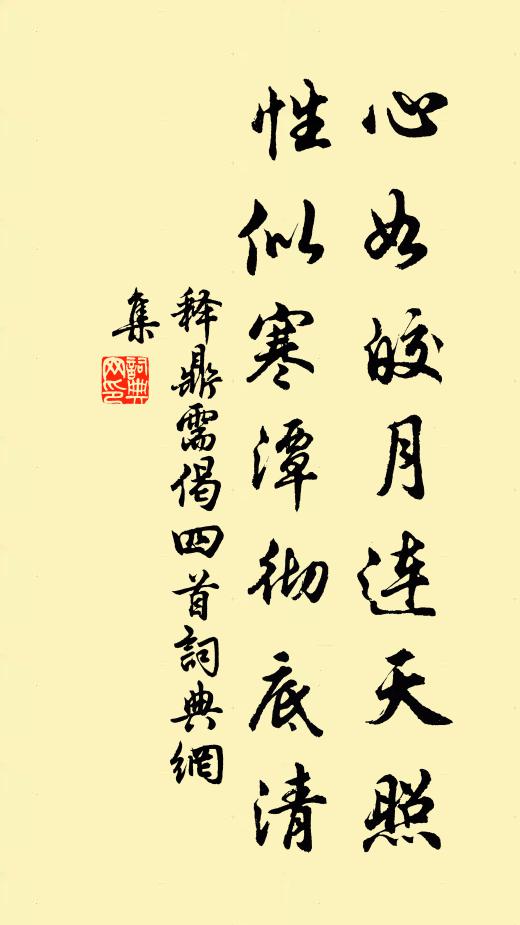 心如皎月连天照
性似寒潭彻底清
释鼎需偈四首詞典網
集
詞典
网印